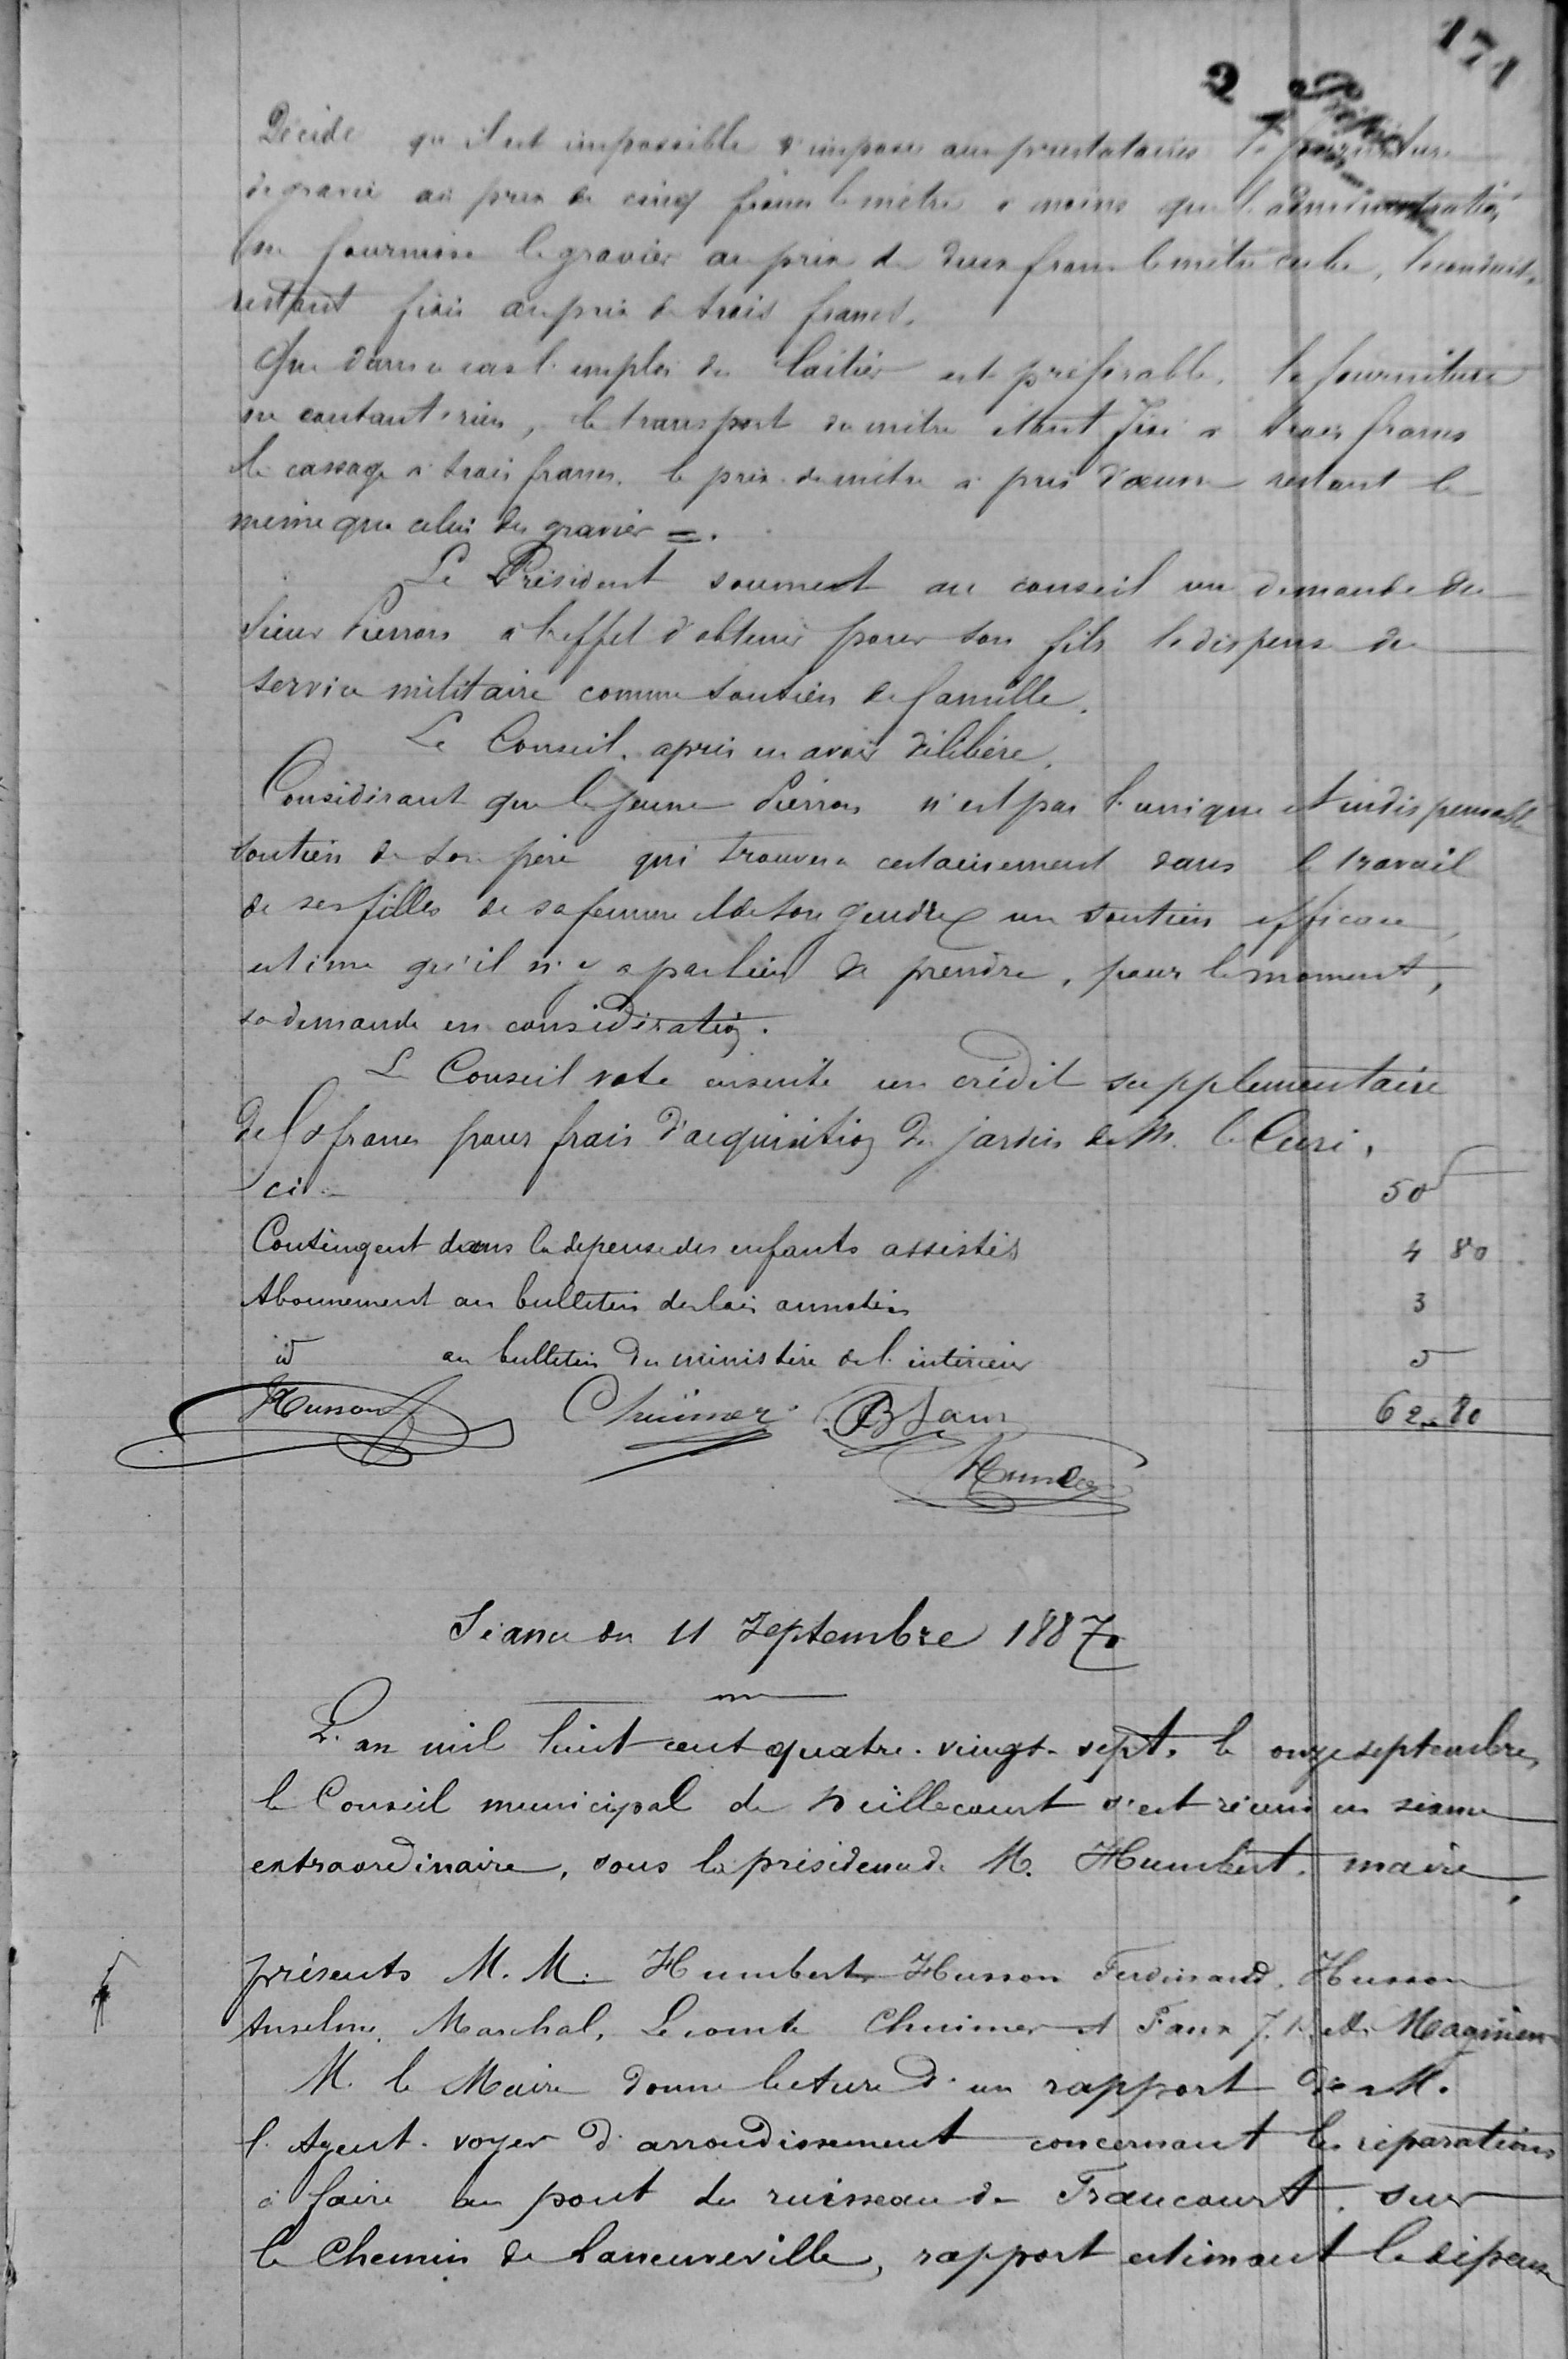 171
2
Décide qu'il est impossible d'imposer aux prestataires la fourniture
de gravier au prix de cinq francs le mètre à moins que l'administration
ne fournisse le gravier au prix de deux francs le mètre cube, la conduite
restant fixée au prix de trois francs.
Que dans ce cas l'emploi du laitier est préférable, la fourniture
ne coutant rien, le transport du mètre étant fixé à trois francs
le cassage à trois francs, le prix du mètre à pied d'œuvre restant le
même que celui du gravier =.
Le Président soumet au conseil une demande du
sieur Pierron à l'effet d'obtenir pour son fils la dispense du
service militaire comme soutien de famille.
Le Conseil, après en avoir délibéré,
Considérant que le jeune Pierron n'est pas l'unique et indispensable
soutien de son père qui trouvera certainement dans le travail
de ses filles de sa femme et de son gendre un soutien efficace,
estime qu'il n'y a pas lieu de prendre, pour le moment,
sa demande en considération.
Le Conseil vote ensuite un crédit supplémentaire
de 50 francs pour frais d'acquisition du jardin de M. le Curé,
ci 50
Contingent dans la dépense des enfants assistés 4 80
Abonnement au bulletin des lois annotées 3
id au bulletin du ministère de l'intérieur 5
Husson Chuimer 62 80
Humbert
Séance du 11 Septembre 1887
L'an mil huit cent quatre-vingt-sept, le onze septembre,
le Conseil municipal de s'est réuni en séance
extraordinaire, sous la présidence de M. Humbert, maire,
présents M.M. Humbert, Husson Ferdinand, Husson
Anselme, Marchal, Lecomte Chuimer et Faux J. B. et Magnien
M. le Maire donne lecture d'un rapport de M.
l'Agent-voyer d'arrondissement concernant les réparations
à faire au pont du ruisseau de Francourt, sur
le Chemin de Laneuveville, rapport estimant la dépense